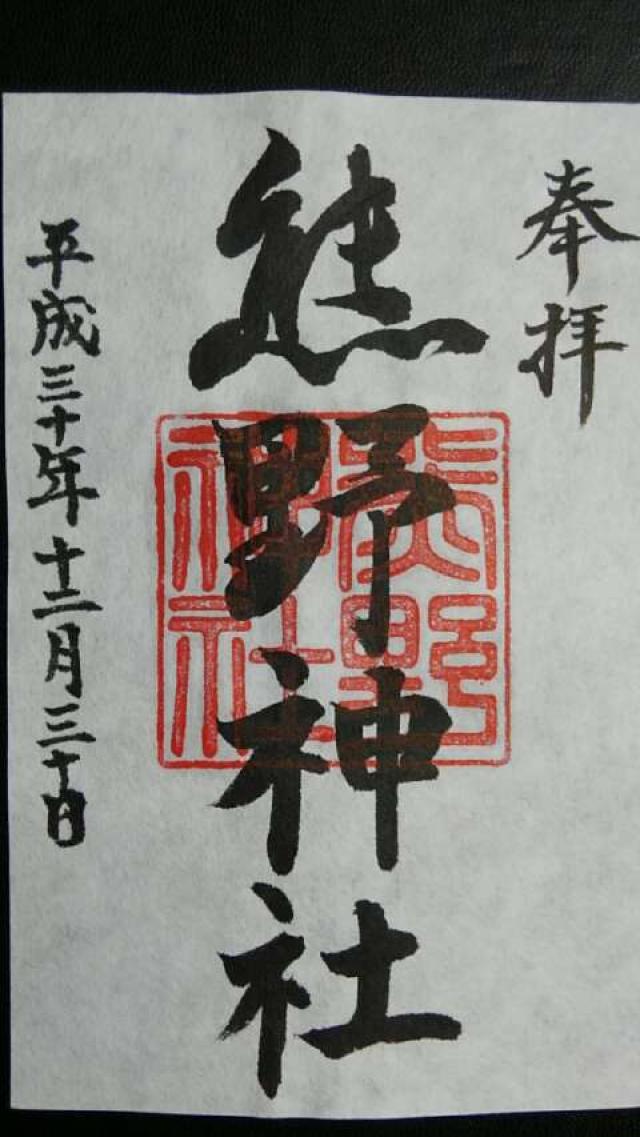 奉拝
熊野神社
熊野神社
平成三十年十二月三十日